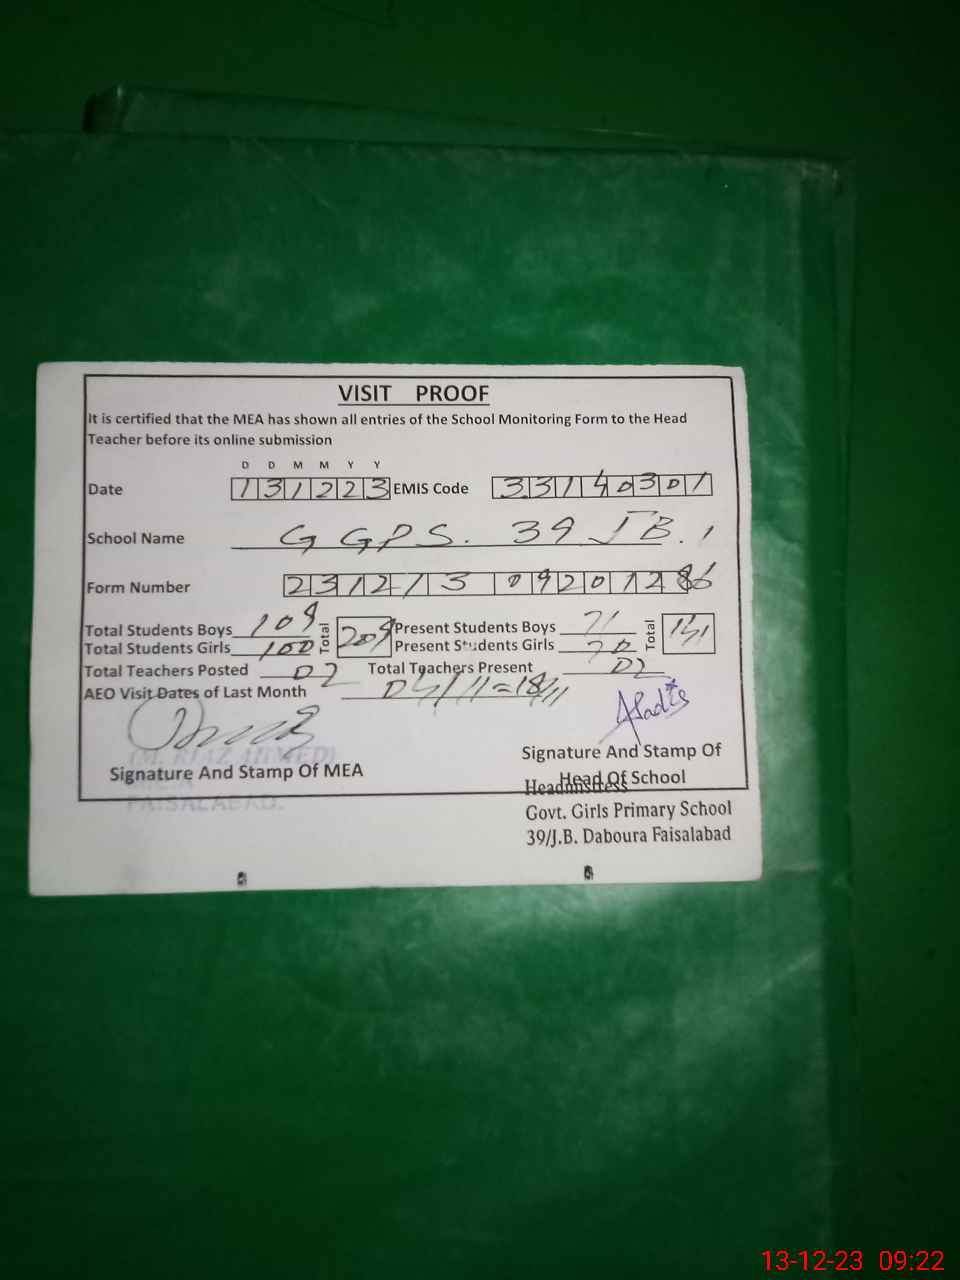 VISIT PROOF
It is certified that the MEA has shown all entries of the School Monitoring Form to the Head
Teacher before its online submission
D D M M Y Y
Date 131223 EMIS Code 33140301
School Name GGPS. 39 JB.
Form Number 2312130920128
Total Students Boys 109 Total 209 Present Students Boys 71 Total 141
Total Students Girls 100 Present Students Girls 70
Total Teachers Posted 02 Total Teachers Present 02
AEO Visit Dates of Last Month 18/11
(M. RIAZ AHMED)
Signature And Stamp Of MEA
FAISALABAD.
Signature And Stamp Of
Head Of School
Headmistress
Govt. Girls Primary School
39/J.B. Daboura Faisalabad
13-12-23 09:22